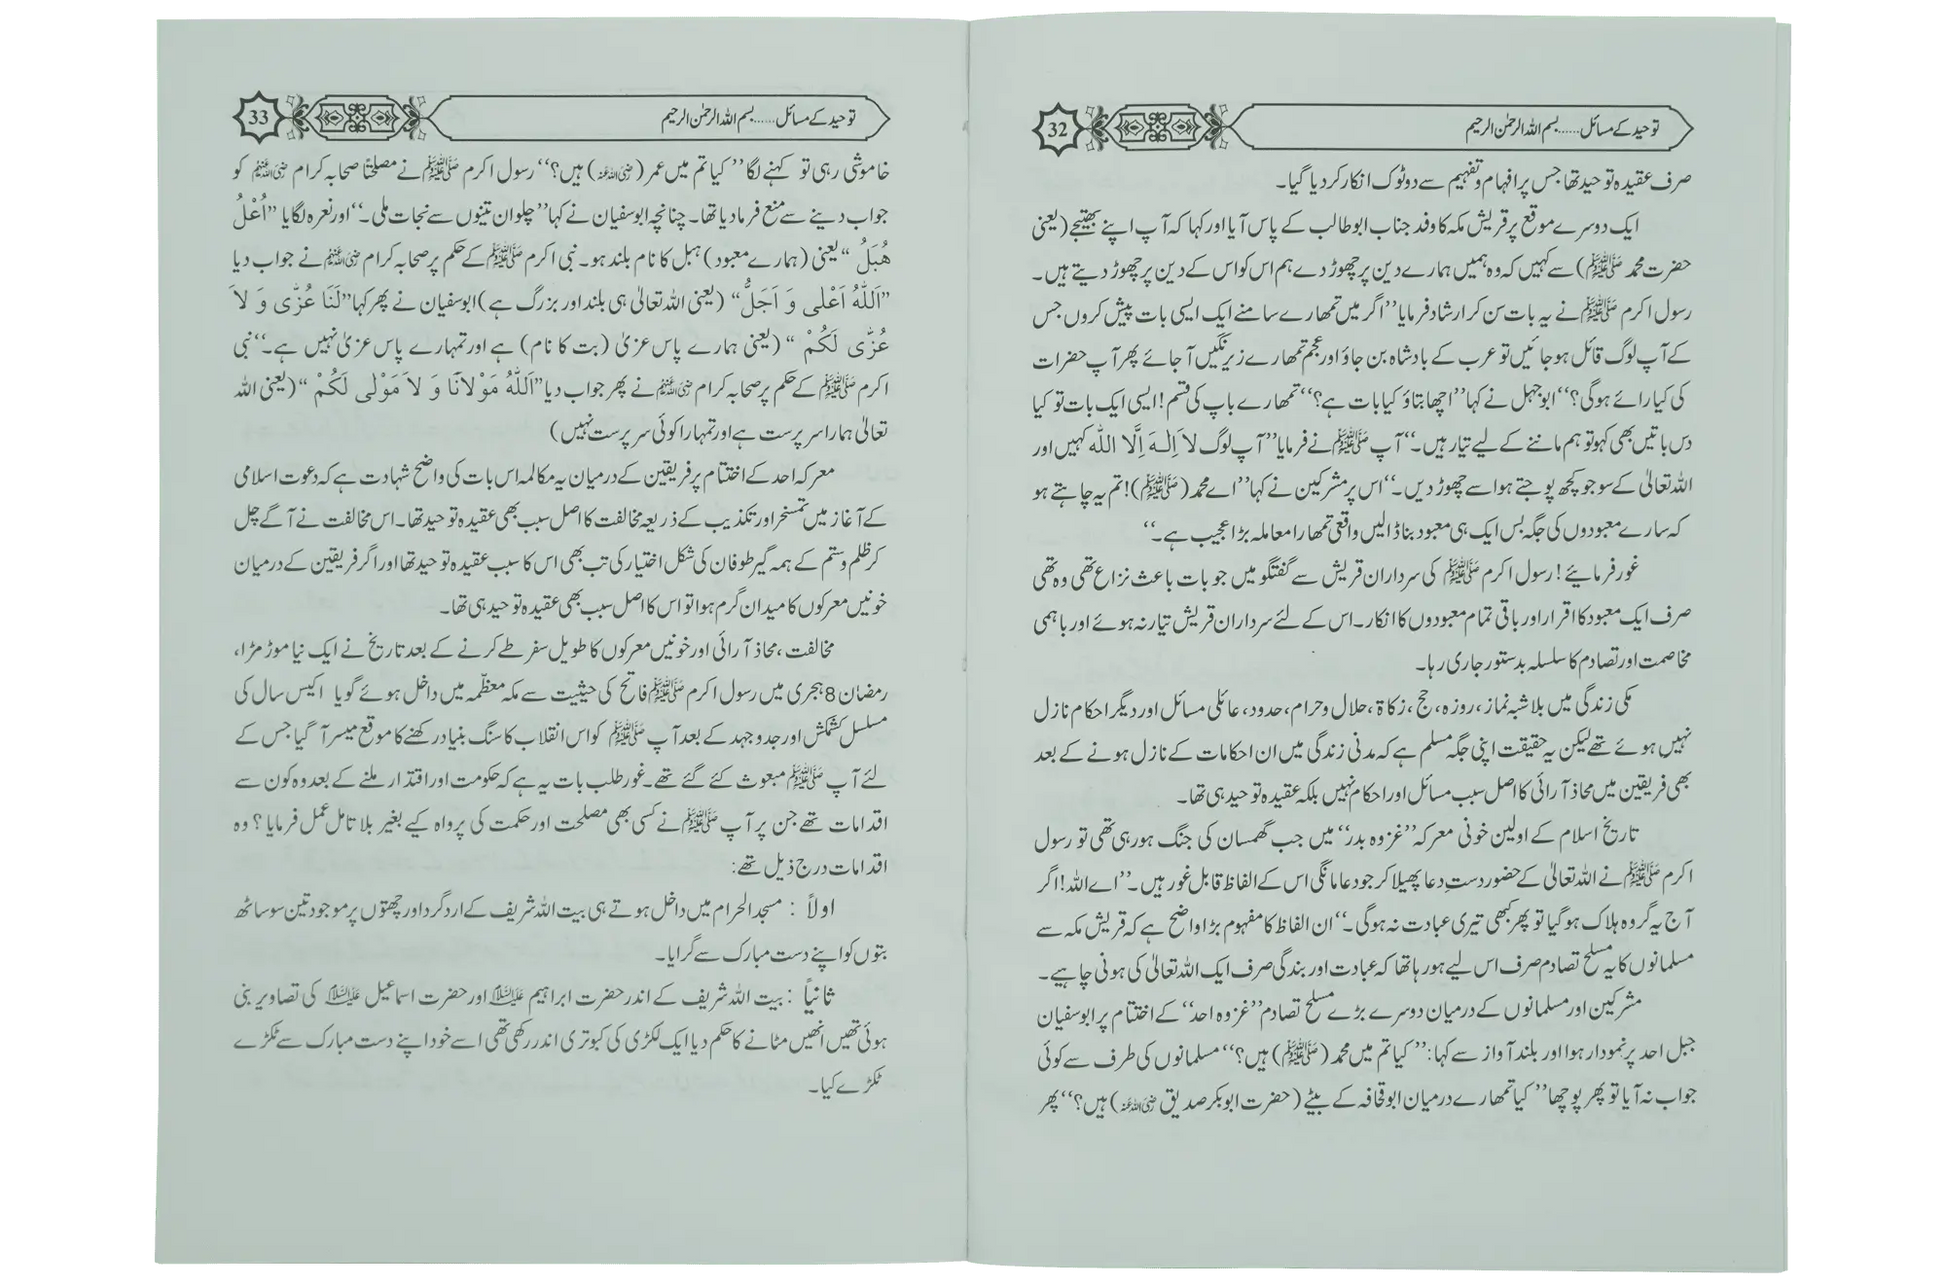 توحید کے مسائل ...... بسم اللہ الرحمٰن الرحیم
32
صرف عقیدہ توحید تھا جس پر افہام و تفہیم سے دو ٹوک انکار کر دیا گیا۔
ایک دوسرے موقع پر قریش مکہ کا وفد جناب ابو طالب کے پاس آیا اور کہا کہ آپ اپنے بھتیجے (یعنی
حضرت محمد ﷺ) سے کہیں کہ وہ ہمیں ہمارے دین پر چھوڑ دے ہم اس کو اس کے دین پر چھوڑ دیتے ہیں۔
رسول اکرم ﷺ نے یہ بات سن کر ارشاد فرمایا ”اگر میں تمھارے سامنے ایک ایسی بات پیش کروں جس
کے آپ لوگ قائل ہو جائیں تو عرب کے بادشاہ بن جاؤ اور عجم تمھارے زیر نگیں آ جائے پھر آپ حضرات
کی کیا رائے ہوگی؟“ ابو جہل نے کہا ”اچھا بتاؤ کیا بات ہے؟“ تمھارے باپ کی قسم! ایسی ایک بات تو کیا
دس باتیں بھی کہو تو ہم ماننے کے لیے تیار ہیں۔“ آپ ﷺ نے فرمایا ”آپ لوگ لاَ اِلٰہَ اِلَّا اللّٰہ کہیں اور
اللہ تعالیٰ کے سوا جو کچھ پوجتے ہو اسے چھوڑ دیں۔“ اس پر مشرکین نے کہا ”اے محمد (ﷺ)! تم یہ چاہتے ہو
کہ سارے معبودوں کی جگہ بس ایک ہی معبود بنا ڈالیں واقعی تمھارا معاملہ بڑا عجیب ہے۔“
غور فرمائیے! رسول اکرم ﷺ کی سرداران قریش سے گفتگو میں جو بات باعث نزاع تھی وہ تھی
صرف ایک معبود کا اقرار اور باقی تمام معبودوں کا انکار۔ اس کے لئے سرداران قریش تیار نہ ہوئے اور باہمی
مخاصمت اور تصادم کا سلسلہ بدستور جاری رہا۔
مکی زندگی میں بلا شبہ نماز، روزہ، حج، زکاۃ، حلال و حرام، حدود، عائلی مسائل اور دیگر احکام نازل
نہیں ہوئے تھے لیکن یہ حقیقت اپنی جگہ مسلم ہے کہ مدنی زندگی میں ان احکامات کے نازل ہونے کے بعد
بھی فریقین میں محاذ آرائی کا اصل سبب مسائل اور احکام نہیں بلکہ عقیدہ توحید ہی تھا۔
تاریخ اسلام کے اولین خونی معرکہ ”غزوہ بدر“ میں جب گھمسان کی جنگ ہو رہی تھی تو رسول
اکرم ﷺ نے اللہ تعالیٰ کے حضور دستِ دعا پھیلا کر جو دعا مانگی اس کے الفاظ قابل غور ہیں۔ ”اے اللہ! اگر
آج یہ گروہ ہلاک ہو گیا تو پھر کبھی تیری عبادت نہ ہوگی۔“ ان الفاظ کا مفہوم بڑا واضح ہے کہ قریش مکہ سے
مسلمانوں کا یہ مسلح تصادم صرف اس لیے ہو رہا تھا کہ عبادت اور بندگی صرف ایک اللہ تعالیٰ کی ہونی چاہیے۔
مشرکین اور مسلمانوں کے درمیان دوسرے بڑے مسلح تصادم ”غزوہ احد“ کے اختتام پر ابو سفیان
جبل احد پر نمودار ہوا اور بلند آواز سے کہا: ”کیا تم میں محمد (ﷺ) ہیں؟“ مسلمانوں کی طرف سے کوئی
جواب نہ آیا تو پھر پوچھا ”کیا تمھارے درمیان ابو قحافہ کے بیٹے (حضرت ابوبکر صدیق رضی اللہ عنہ) ہیں؟“ پھر
توحید کے مسائل ...... بسم اللہ الرحمٰن الرحیم
33
خاموشی رہی تو کہنے لگا ”کیا تم میں عمر (رضی اللہ عنہ) ہیں؟“ رسول اکرم ﷺ نے مصلحتاً صحابہ کرام رضی اللہ عنہم کو
جواب دینے سے منع فرما دیا تھا۔ چنانچہ ابو سفیان نے کہا ”چلو ان تینوں سے نجات ملی۔“ اور نعرہ لگایا ”اُعْلُ
ھُبَلُ“ یعنی (ہمارے معبود) ہبل کا نام بلند ہو۔ نبی اکرم ﷺ کے حکم پر صحابہ کرام رضی اللہ عنہم نے جواب دیا
”اَللّٰہُ اَعْلٰی وَ اَجَلُّ“ (یعنی اللہ تعالیٰ ہی بلند اور بزرگ ہے) ابو سفیان نے پھر کہا ”لَنَا عُزّٰی وَ لاَ
عُزّٰی لَکُمْ“ (یعنی ہمارے پاس عزیٰ (بت کا نام) ہے اور تمہارے پاس عزیٰ نہیں ہے۔“ نبی
اکرم ﷺ کے حکم پر صحابہ کرام رضی اللہ عنہم نے پھر جواب دیا ”اَللّٰہُ مَوْلاَنَا وَ لاَ مَوْلٰی لَکُمْ“ (یعنی اللہ
تعالیٰ ہمارا سرپرست ہے اور تمہارا کوئی سرپرست نہیں)
معرکہ احد کے اختتام پر فریقین کے درمیان یہ مکالمہ اس بات کی واضح شہادت ہے کہ دعوت اسلامی
کے آغاز میں تمسخر اور تکذیب کے ذریعہ مخالفت کا اصل سبب بھی عقیدہ توحید تھا۔ اس مخالفت نے آگے چل
کر ظلم و ستم کے ہمہ گیر طوفان کی شکل اختیار کی تب بھی اس کا سبب عقیدہ توحید تھا اور اگر فریقین کے درمیان
خونیں معرکوں کا میدان گرم ہوا تو اس کا اصل سبب بھی عقیدہ توحید ہی تھا۔
مخالفت، محاذ آرائی اور خونیں معرکوں کا طویل سفر طے کرنے کے بعد تاریخ نے ایک نیا موڑ مڑا،
رمضان 8 ہجری میں رسول اکرم ﷺ فاتح کی حیثیت سے مکہ معظّمہ میں داخل ہوئے گویا اکیس سال کی
مسلسل کشمکش اور جدوجہد کے بعد آپ ﷺ کو اس انقلاب کا سنگ بنیاد رکھنے کا موقع میسر آ گیا جس کے
لئے آپ ﷺ مبعوث کئے گئے تھے۔ غور طلب بات یہ ہے کہ حکومت اور اقتدار ملنے کے بعد وہ کون سے
اقدامات تھے جن پر آپ ﷺ نے کسی بھی مصلحت اور حکمت کی پرواہ کیے بغیر بلا تامل عمل فرمایا؟ وہ
اقدامات درج ذیل تھے:
اولاً : مسجد الحرام میں داخل ہوتے ہی بیت اللہ شریف کے ارد گرد اور چھتوں پر موجود تین سو ساٹھ
بتوں کو اپنے دست مبارک سے گرایا۔
ثانیاً : بیت اللہ شریف کے اندر حضرت ابراہیم علیہ السلام اور حضرت اسماعیل علیہ السلام کی تصاویر بنی
ہوئی تھیں انھیں مٹانے کا حکم دیا ایک لکڑی کی کبوتری اندر رکھی تھی اسے خود اپنے دست مبارک سے ٹکڑے
ٹکڑے کیا۔